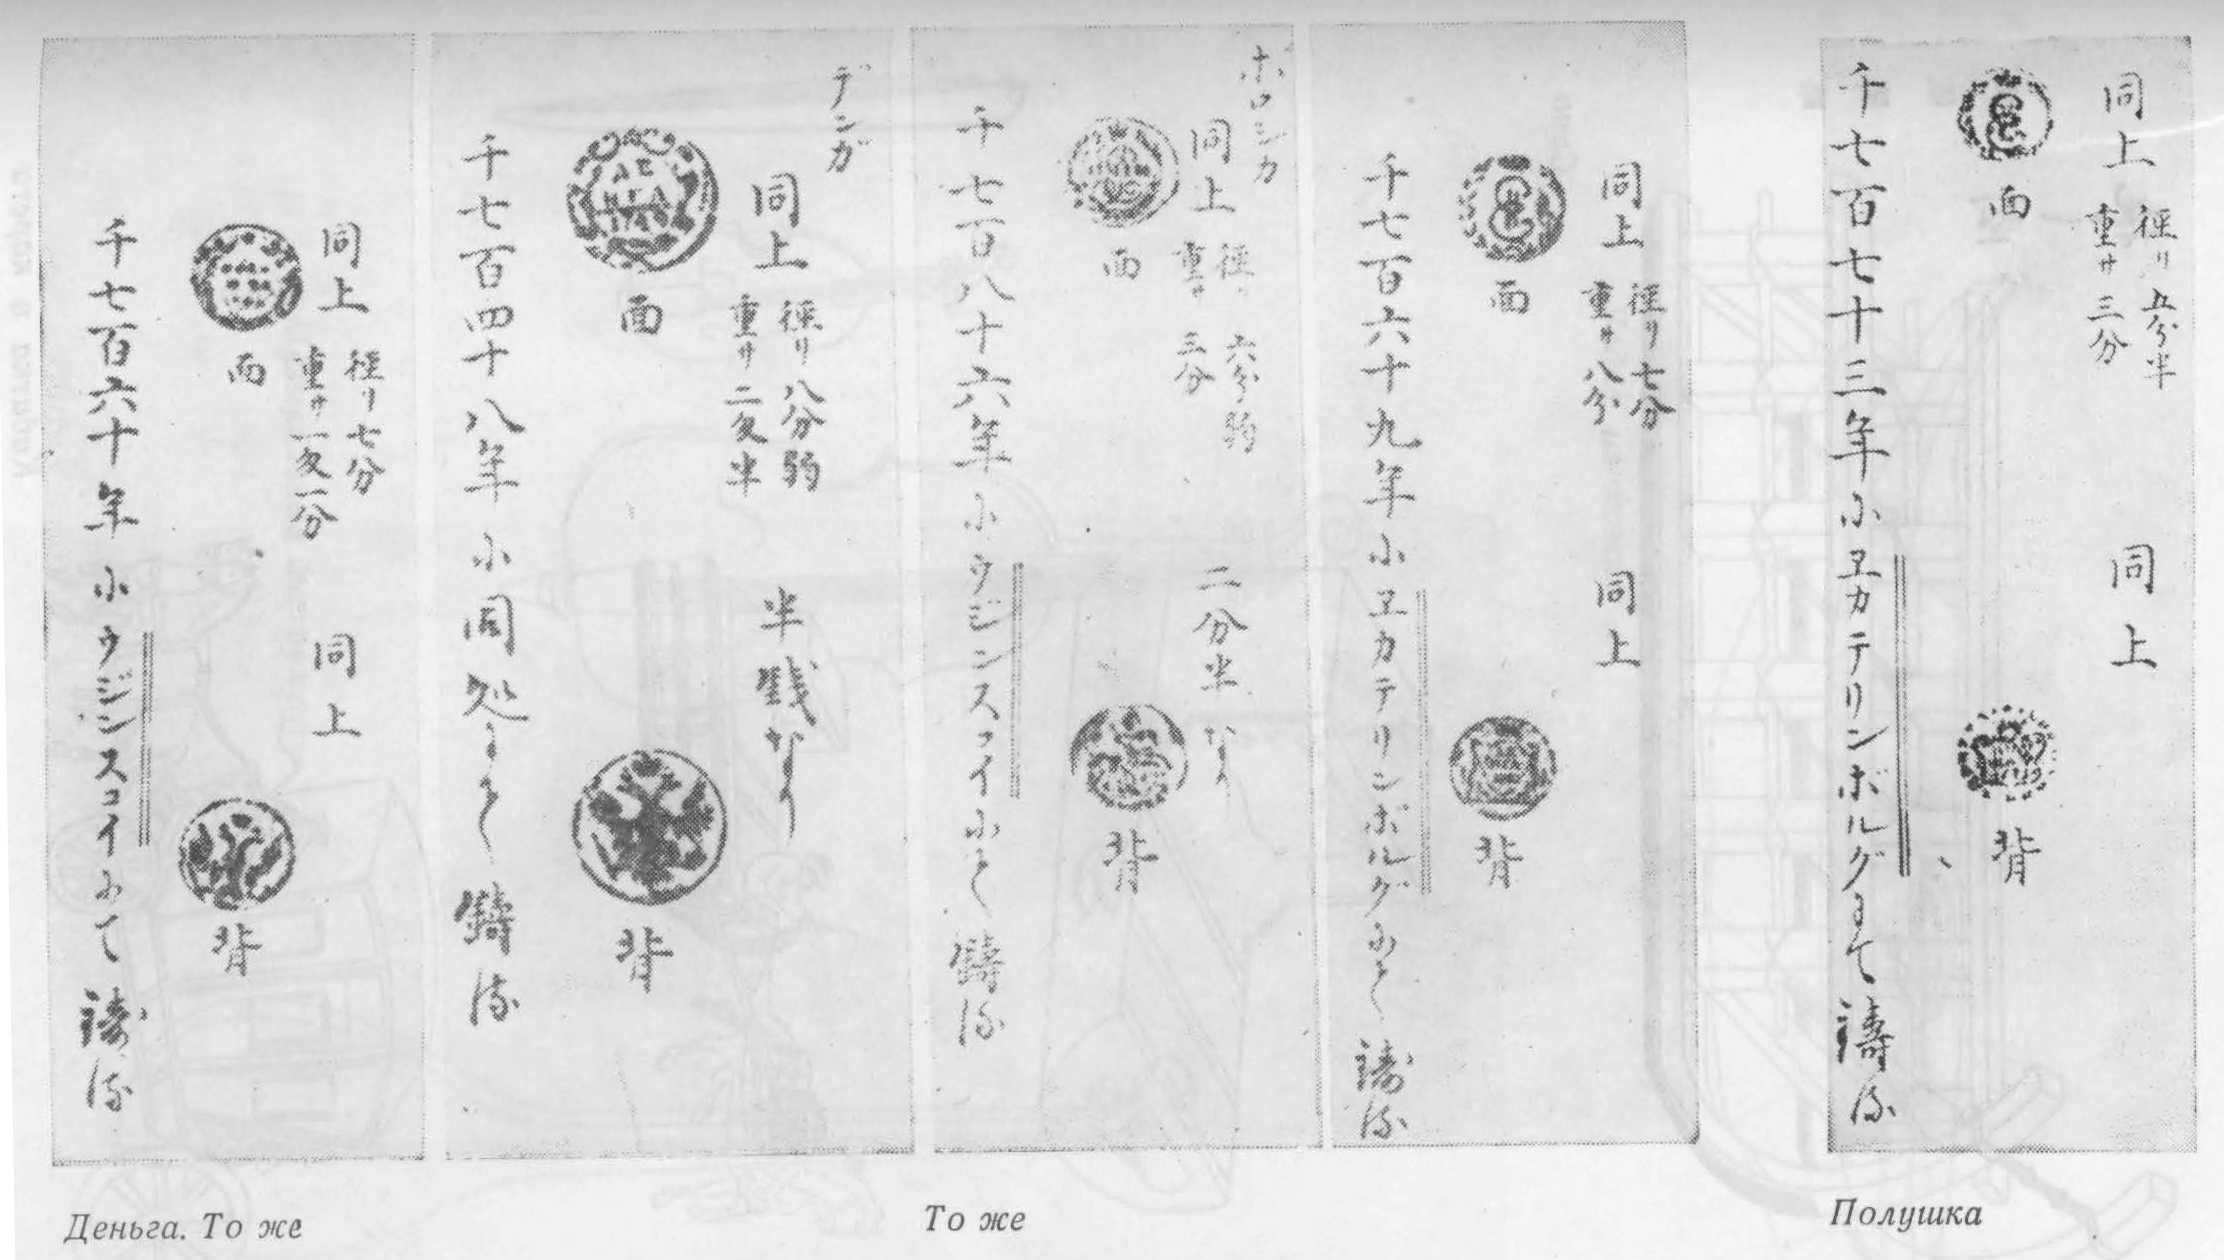 同上
徑リ五分半
重サ三分
面
同上
背
千七百七十三年小ヱカテリンボルグにて鑄る
同上
徑リ七分
重サ八分
面
同上
背
千七百六十九年小ヱカテリンボルグにて鑄る
ホロシカ
同上
徑リ六分弱
重サ三分
面
二分半なり
背
千七百八十六年小ウジンスコイにて鑄る
デンガ
同上
徑リ八分弱
重サ二匁半
面
半錢なり
背
千七百四十八年小同処にて鑄る
同上
徑リ七分
重サ一匁一分
面
同上
背
千七百六十年小ウジンスコイにて鑄る
Деньга. То же
То же
Полушка